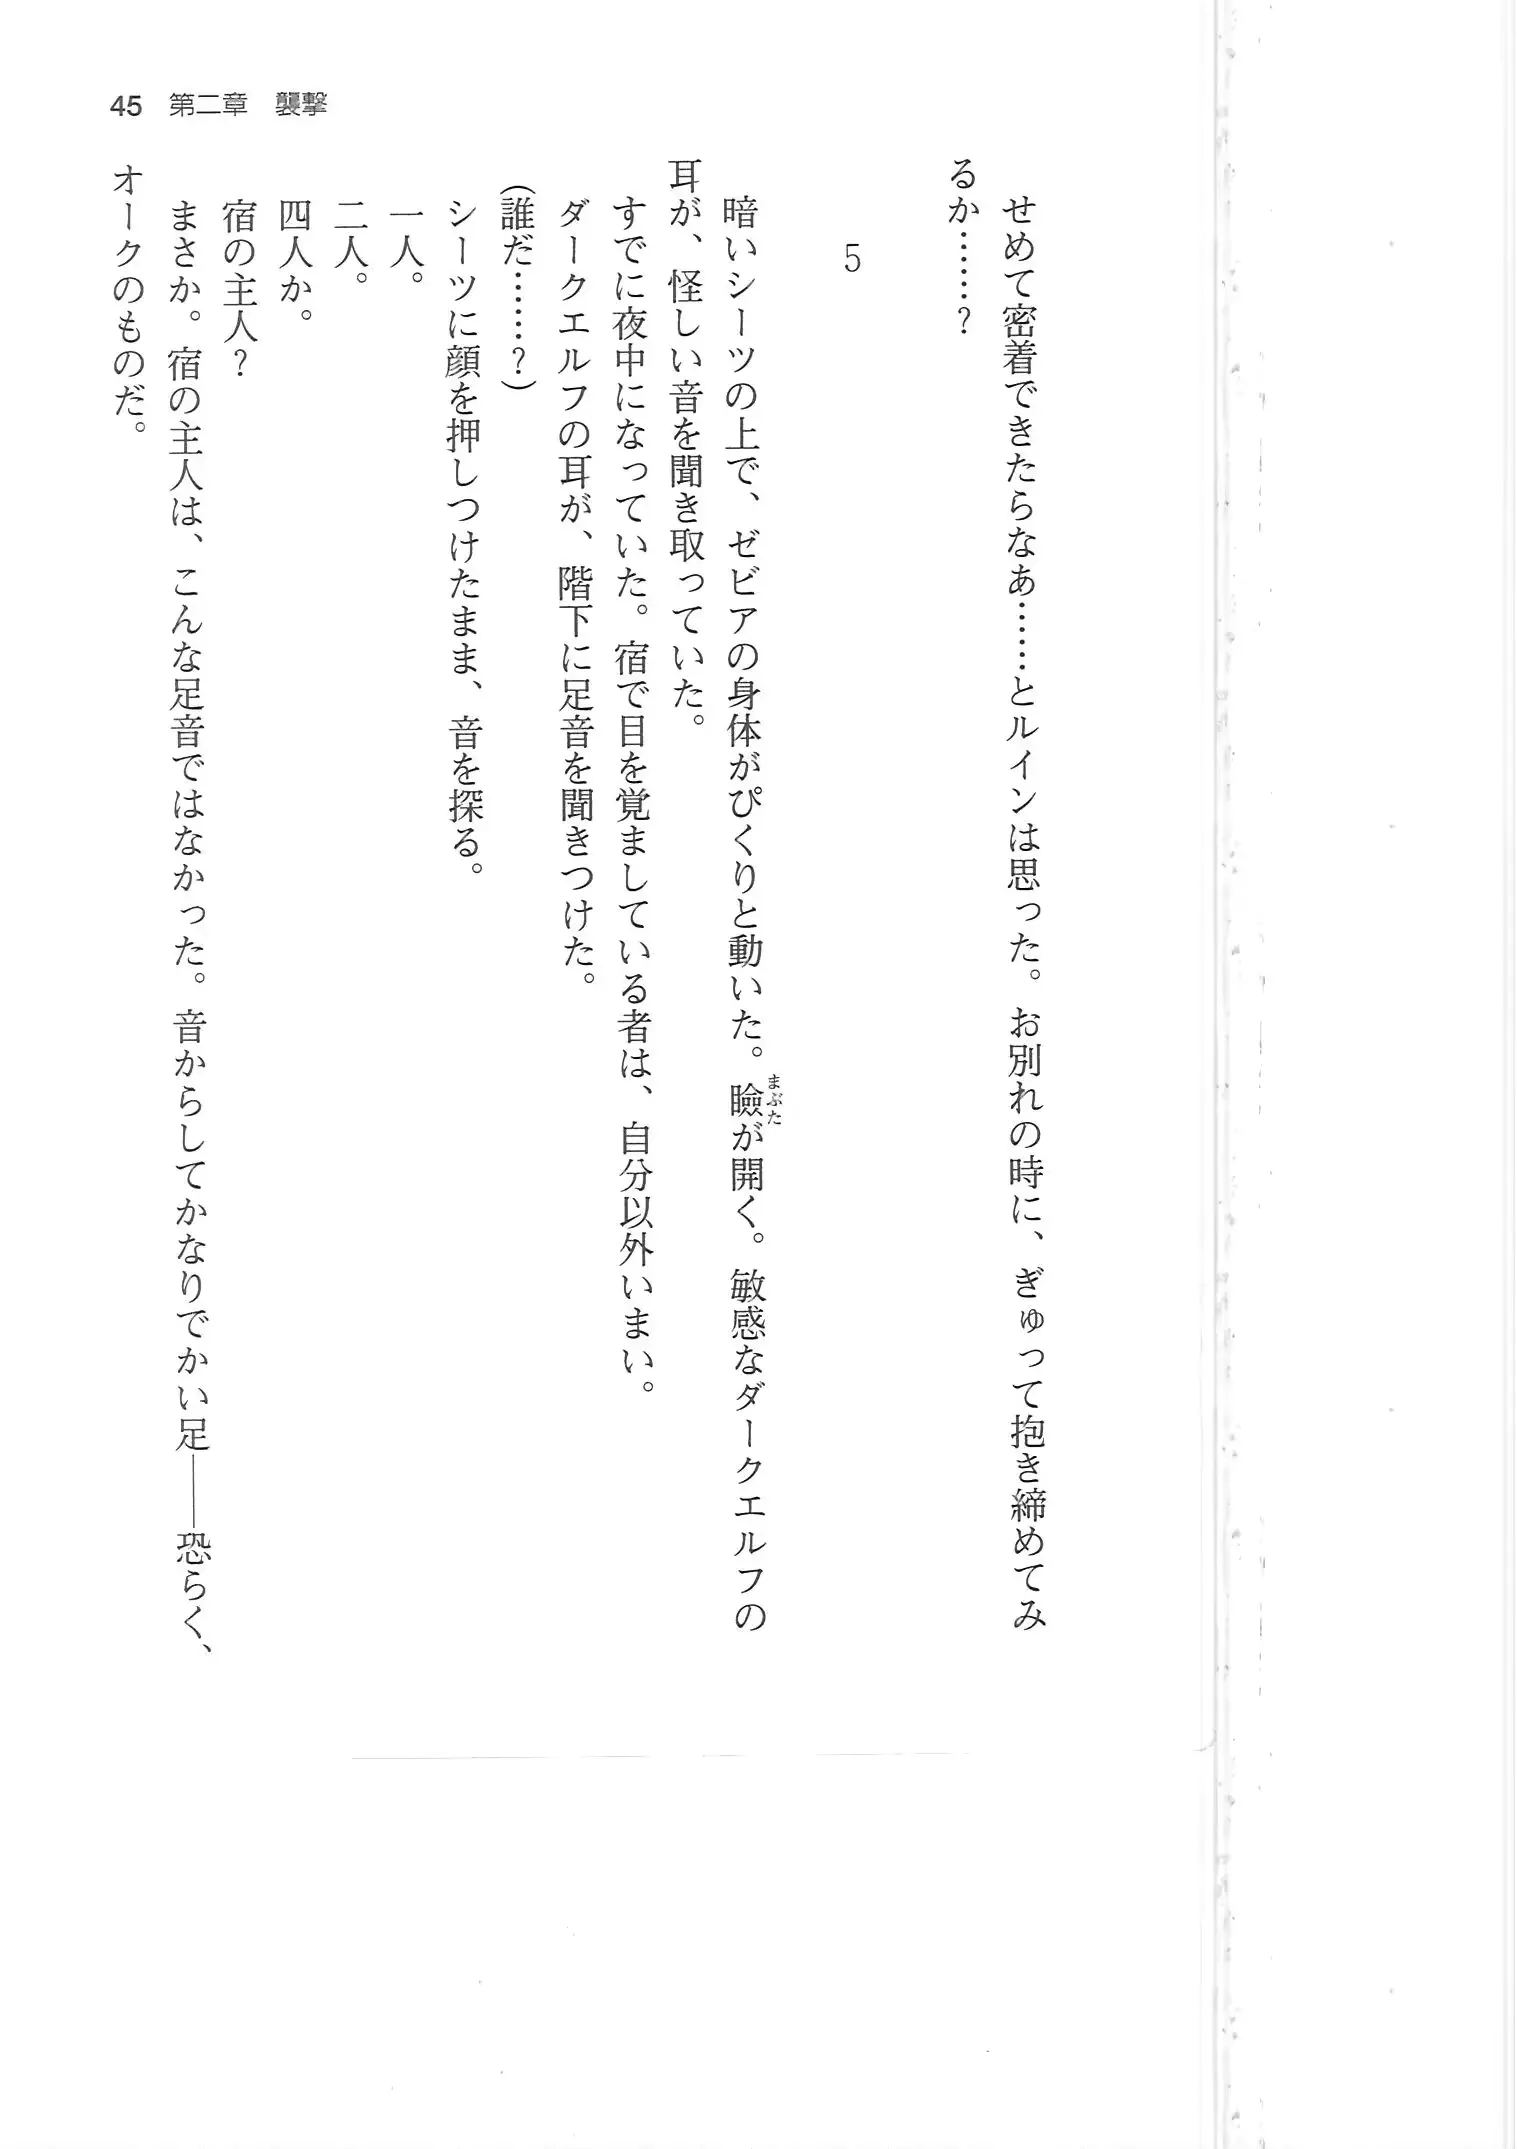 45 第二章 襲撃
せめて密着できたらなあ……とルインは思った。お別れの時に、ぎゅって抱き締めてみ
るか……？
5
暗いシーツの上で、ゼビアの身体がぴくりと動いた。瞼が開く。敏感なダークエルフの
まぶた
耳が、怪しい音を聞き取っていた。
すでに夜中になっていた。宿で目を覚ましている者は、自分以外いまい。
ダークエルフの耳が、階下に足音を聞きつけた。
（誰だ……？）
シーツに顔を押しつけたまま、音を探る。
一人。
二人。
四人か。
宿の主人？
まさか。宿の主人は、こんな足音ではなかった。音からしてかなりでかい足――恐らく、
オークのものだ。